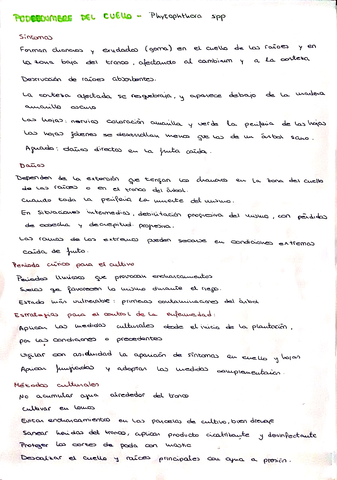 PODREDUMBRE DEL CUELLO - Phytophthora spp
Síntomas
Forman chancros y exudados (goma) en el cuello de las raíces y en
la zona baja del tronco, afectando al cambium y a la corteza
Destrucción de raíces absorbentes.
La corteza afectada se resquebraja, y aparece debajo de la madera
amarillo oscuro
Las hojas: nervios coloración amarilla y verde la periferia de las hojas
Las hojas jóvenes se desarrollan menos que las de un árbol sano.
Aguado: daños directos en la fruta caída.
Daños
Dependen de la extensión que tengan los chancros en la zona del cuello
de las raíces o en el tronco del árbol.
Cuando toda la periferia la muerte del mismo.
En situaciones intermedias, debilitación progresiva del mismo, con pérdidas
de cosecha y decrepitud progresiva.
Las ramas de los extremos pueden secarse en condiciones extremas
caída de fruto.
Periodo crítico para el cultivo
Periodos lluviosos que provocan encharcamientos
Suelos que favorecen lo mismo durante el riego.
Estado más vulnerable: primeras contaminaciones del árbol
Estrategias para el control de la enfermedad:
Aplicar las medidas culturales desde el inicio de la plantación,
por las condiciones o precedentes
Vigilar con asiduidad la aparición de síntomas en cuello y hojas
Aplicar fungicidas y adoptar las medidas complementarias.
Métodos culturales
No acumular agua alrededor del tronco
Cultivar en lomos
Evitar encharcamientos en las parcelas de cultivo, buen drenaje
Sanear heridas del tronco, aplicar producto cicatrizante y desinfectante
Proteger los cortes de poda con mastic
Descalzar el cuello y raíces principales con agua a presión.